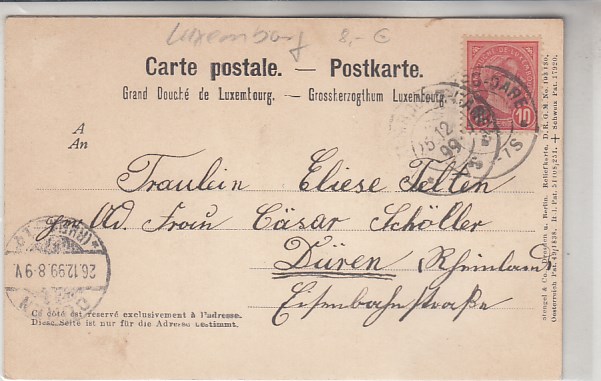 Luxemburg 8,- €
Carte postale. — Postkarte.
Grand Douché de Luxembourg. — Grossherzogthum Luxembourg.
A
An
Fraulein Eliese Felten
Adr. Frau Cäsar Schöller
Düren Rheinland
Eisenbahnstraße
Ce côté est reservé exclusivement à l'adresse.
Diese Seite ist nur für die Adresse bestimmt.
10
GARE
25 12 99
26.12.99.8-9V.
Stengel & Co., Dresden u. Berlin. Reliefkarte. D. R. G. M. No.
Oesterreich Pat. + Schweiz Pat. 17920.